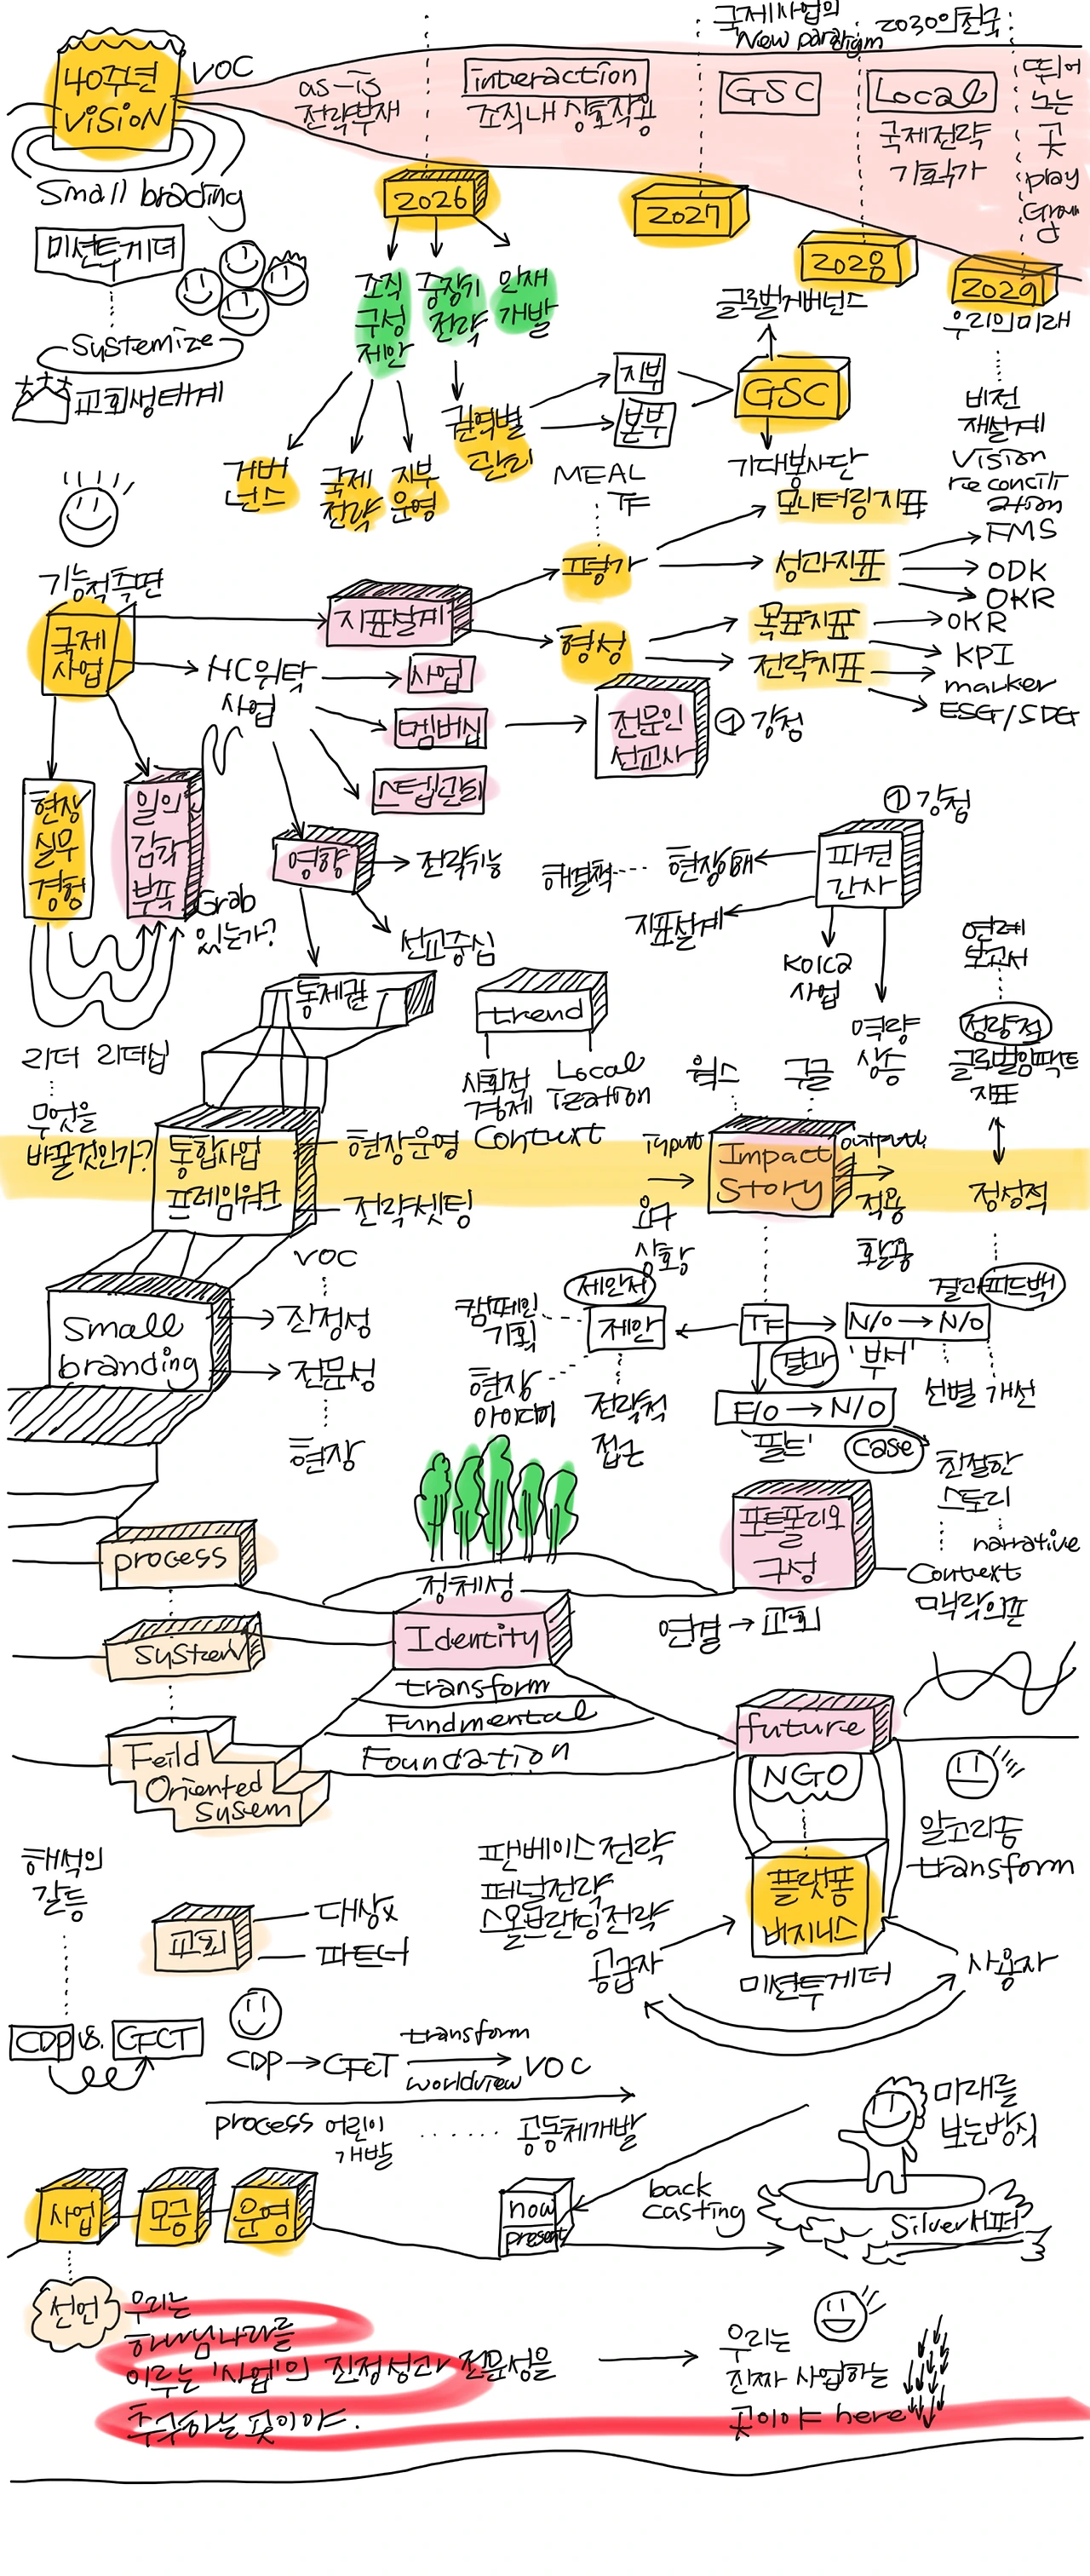 국제사업의
New paradigm
2030의 천국
40주년
VISION
VOC
as-is
전략부재
interaction
조직내 상호작용
GSC
Local
국제전략
기획국가
뛰어
노는
곳
play
Small brading
2026
2027
2028
2029
우리의미래
미션투게더
Systemize
교회생태계
조직
구성
제안
중장기
전략
인재
개발
글로벌거버넌스
GSC
기대봉사단
지부
본부
권역별
관리
거버
넌스
국제
전략
지부
운영
MEAL
TF
비전
재설계
Vision
reconcili
ation
기능적측면
국제
사업
지표설계
평가
모니터링지표
성과지표
FMS
ODK
OKR
형성
목표지표
전략지표
OKR
KPI
marker
ESG/SDG
HC위탁
사업
사업
멤버십
스텝관리
전문인
선교사
① 강점
현장
실무
경험
일의
감각
부족
Grab
있는가?
영향
전략기능
선교중심
통제권
① 강점
파견
간사
현장이해
해결책
지표설계
KOICA
사업
역량
상승
연례
보고서
정량적
글로벌임팩트
지표
정성적
리더 리더십
무엇을
바꿀것인가?
trend
사회적
경제
Local
ization
Context
통합사업
프레임워크
현장운영
전략셋팅
웍스
구글
input
Impact
Story
output
요구
상황
적용
활용
VOC
Small
branding
진정성
전문성
현장
제안서
캠페인
기획
제안
현장
아이디어
전략적
접근
TF
결과
N/O → N/O
'부서'
결과피드백
선별 개선
F/O → N/O
'필드'
case
친절한
스토리
narrative
포트폴리오
구성
Context
맥락의존
연결 → 교회
process
정체성
Identity
System
transform
Fundmental
Foundation
Feild
Oriented
Susem
future
NGO
알고리즘
transform
해석의
갈등
팬베이스전략
퍼널전략
스몰브랜딩전략
플랫폼
비지니스
공급자
사용자
미션투게더
교회
대상x
파트너
CDP vs. CFCT
CDP → CFCT
transform
worldview
VOC
process
어린이
개발
공동체개발
미래를
보는방식
now
present
back
casting
Silver서퍼
사업
모금
운영
선언
우리는
하나님나라를
이루는 '사업'의 진정성과 전문성을
추구하는 곳이야.
우리는
진짜 사업하는
곳이야 here